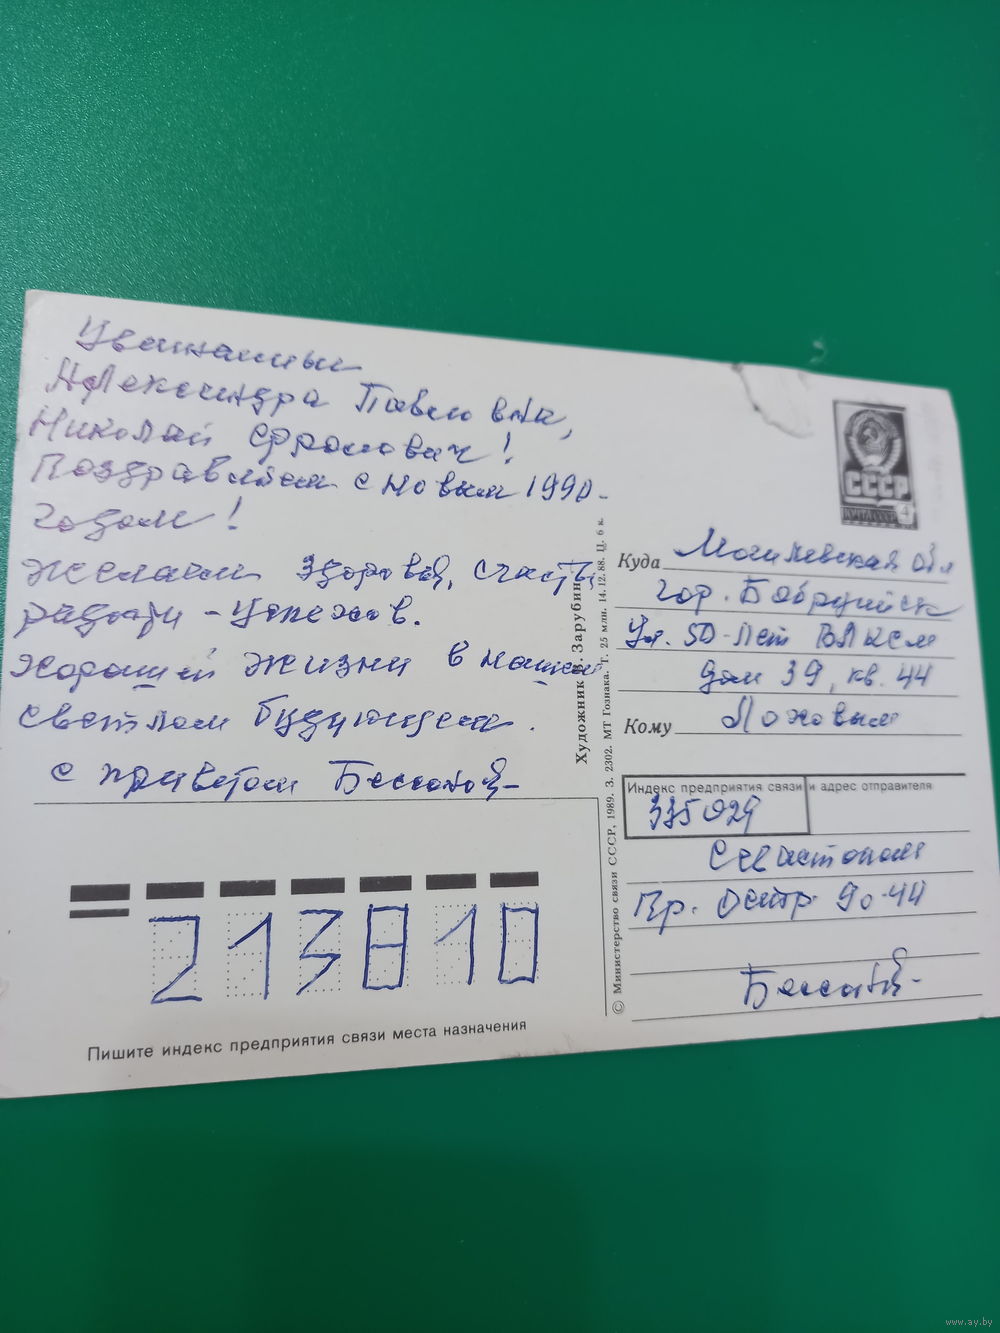 Уважаемые
Александра Павловна,
Николай Фролович!
Поздравляем с новым 1990-
годом!
Желаем здоровья, счастья
радости - успехов.
Хорошей жизни в нашем
светлом будущем.
с приветом
СССР
ПОЧТА СССР 4
Куда Могилевская обл
гор. Бобруйск
Ул. 50-лет ВЛКСМ
дом 39, кв. 44
Кому Лоховым
Индекс предприятия связи и адрес отправителя
335029
Севастополь
Пр. Остр. 90-44
213810
Пишите индекс предприятия связи места назначения
Художник В. Зарубин
© Министерство связи СССР, 1989. З. 2302. МТ Гознака. Т. 25 млн. 14.12.88. Ц. 6 к.
www.ay.by